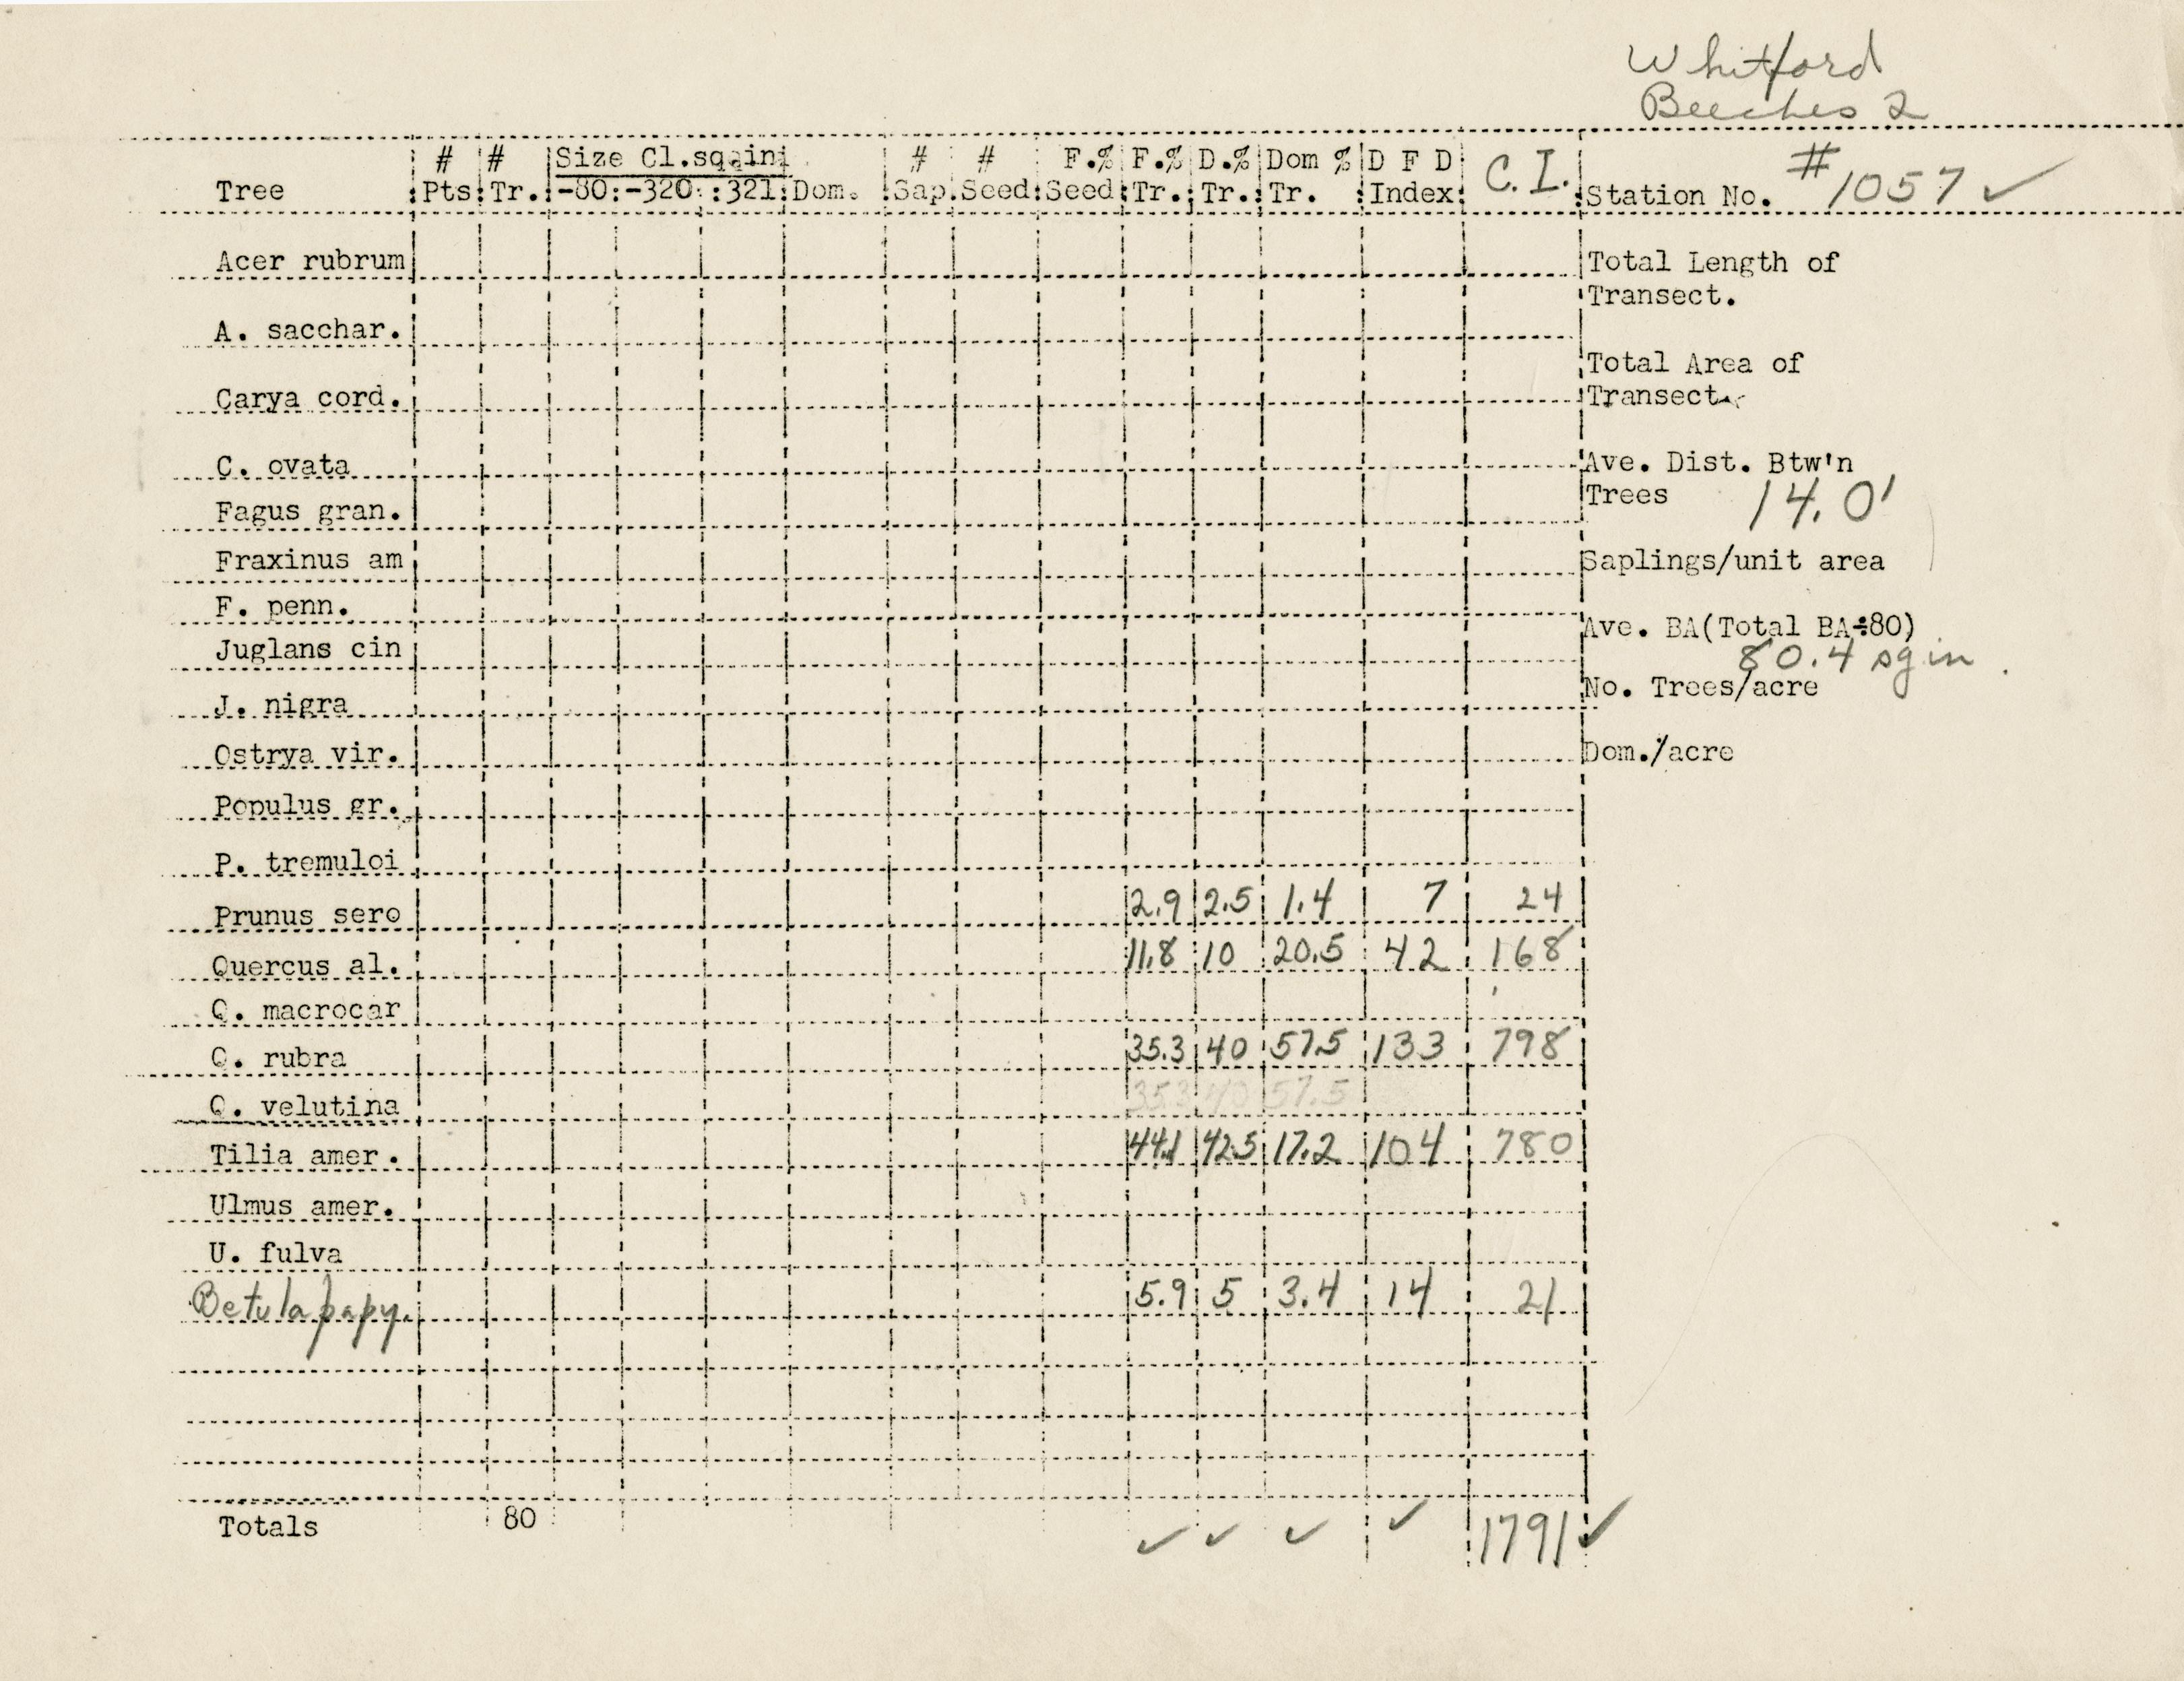 Whitford
Beeches 2
Tree # Pts # Tr. Size Cl.sq.in -80 -320 321 Dom. # Sap. # Seed F.% Seed F.% Tr. D.% Tr. Dom % Tr. D F D Index C.I. Station No. #1057 ✓
Acer rubrum
Total Length of
Transect.
A. sacchar.
Total Area of
Transect
Carya cord.
C. ovata
Ave. Dist. Btw'n
Trees 14.0'
Fagus gran.
Fraxinus am
Saplings/unit area
F. penn.
Ave. BA(Total BA÷80)
80.4 sq in
Juglans cin
No. Trees/acre
J. nigra
Ostrya vir.
Dom./acre
Populus gr.
P. tremuloi
Prunus sero 2.9 2.5 1.4 7 24
Quercus al. 11.8 10 20.5 42 168
Q. macrocar
Q. rubra 35.3 40 57.5 133 798
Q. velutina 35.3 40 57.5
Tilia amer. 44.1 42.5 17.2 104 780
Ulmus amer.
U. fulva
Betula papy. 5.9 5 3.4 14 21
Totals 80 ✓ ✓ ✓ ✓ 1791 ✓